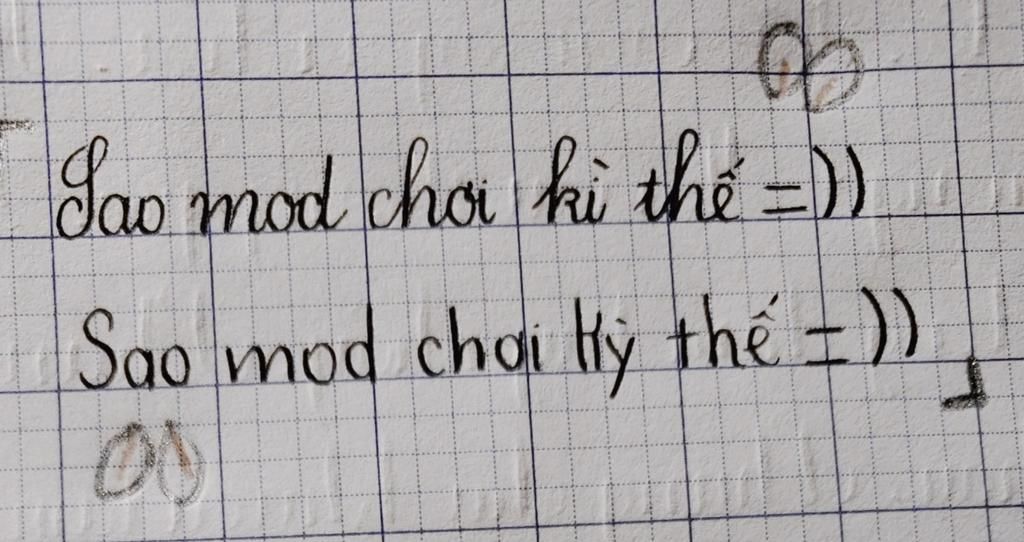 Sao mod chơi kì thế =))
Sao mod chơi kỳ thế =))